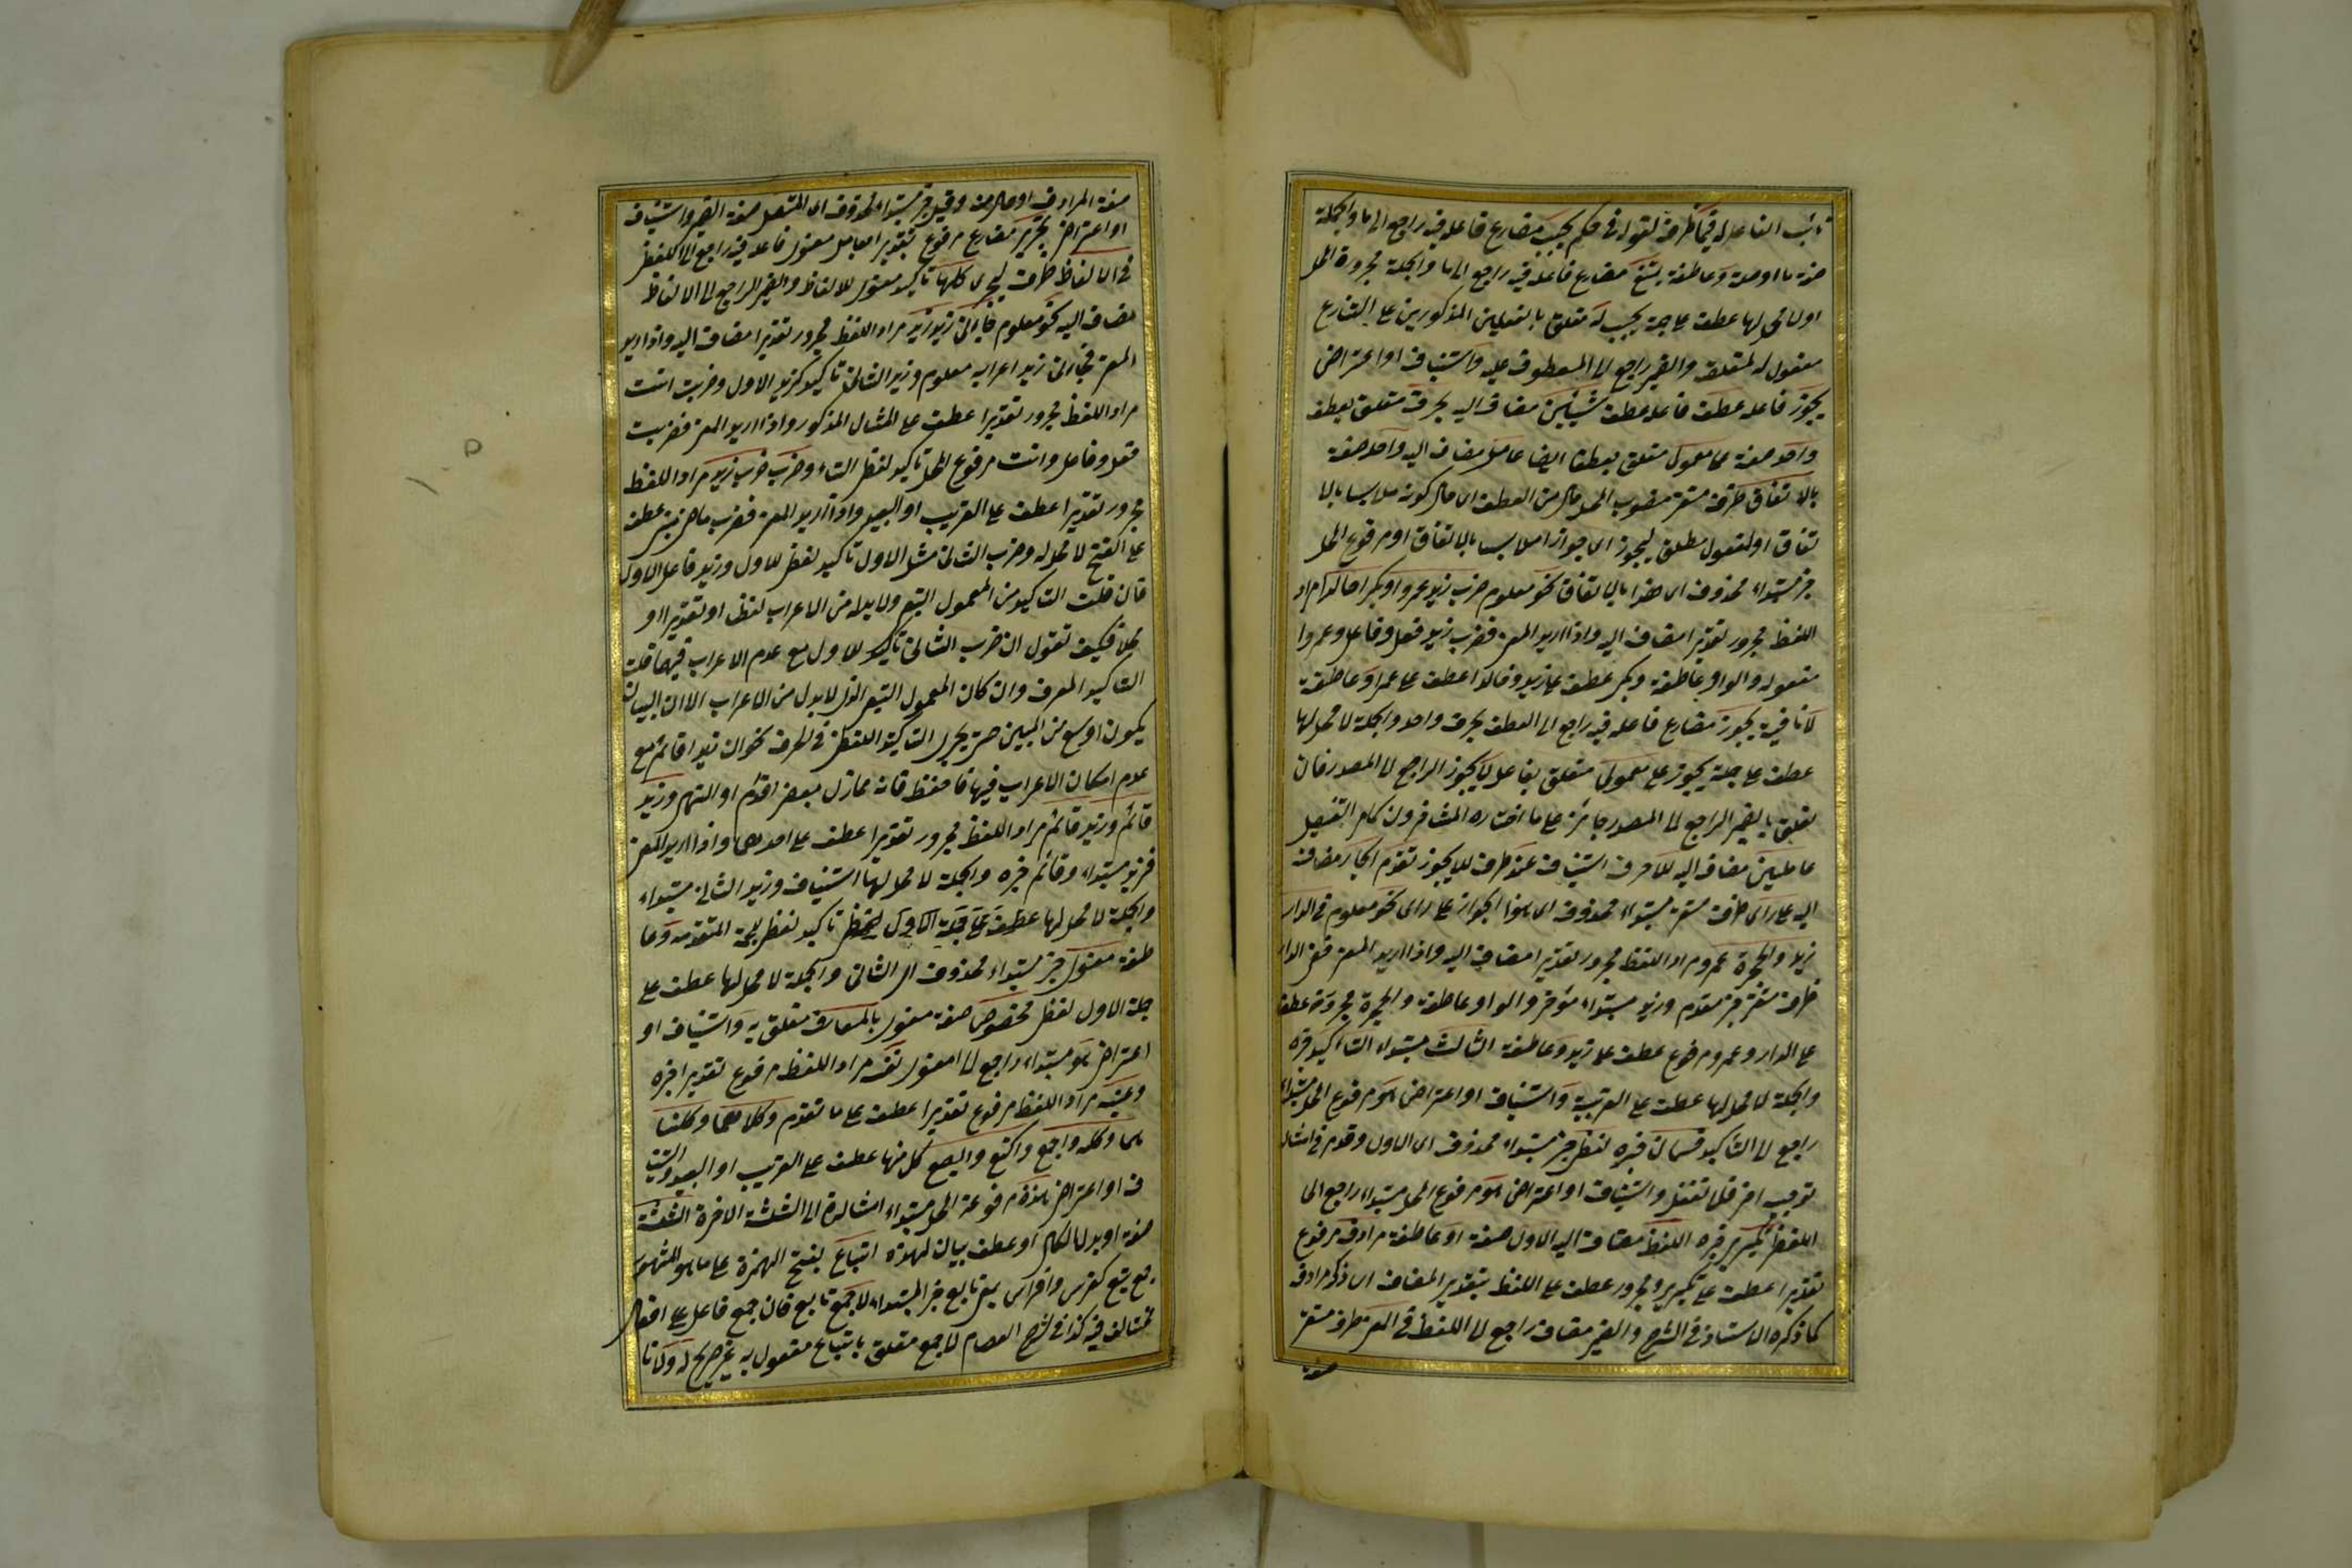 نائب الفاعل له فيما ظرف لقوله في حكم يجب مضارع فاعله فيه راجع الى ما والجملة
صفة ما او صلة وعاطفة يمتنع مضارع فاعله فيه راجع الى ما والجملة مجرورة المحل
او لا محل لها عطف على جملة يجب له متعلق بالفعلين المذكورين على التنازع
مفعول له لمتعلقه والضمير راجع الى المعطوف عليه واستيناف او اعتراض
يجوز فاعله عطف فاعله عطف شيئين مضاف اليه بحرف متعلق بعطف
واحد صفة على معمولي متعلق بعطف ايضا عامل مضاف اليه واحد صفة
بالاتفاق ظرف مستقر منصوب المحل حال من العطف اى حال كونه ملابسا بالا
تفاق او لمفعول مطلق ليجوز اى جوازا ملابسا بالاتفاق او مرفوع المحل
خبر مبتداء محذوف اى هذا بالاتفاق نحو معلوم ضرب زيد عمروا وبكر خالدا مراد
اللفظ مجرور تقديرا مضاف اليه واذا اريد المعنى فضرب زيد فعل وفاعل وعمروا
مفعوله والواو عاطفة وبكر عطف على زيد وخالدا عطف على عمرا وعاطفة
لا نافية يجوز مضارع فاعله فيه راجع الى العطف بحرف واحد والجملة لا محل لها
عطف على جملة يجوز على معمولي متعلق بفاعل لا يجوز الراجع الى المصدر فان
تعلق بالضمير الراجع الى المصدر جائز على ما اختاره المتأخرون كامر التفصيل
عاملين مضاف اليه للاحرف استيناف عند ظرف للايجوز تقدم الجار مضاف
اليه على راى ظرف مستقر مبتداء محذوف اى هذا الجواز على راى نحو معلوم في الدار
زيد والحجرة عمرو مراد اللفظ مجرور تقديرا مضاف اليه واذا اريد المعنى ففي الدار
ظرف مستقر خبر مقدم وزيد مبتداء مؤخر والواو عاطفة والحجرة مجرورة عطف
على الدار وعمرو مرفوع عطف على زيد وعاطفة الثالث مبتداء التأكيد خبره
والجملة لا محل لها عطف على القريبة واستيناف او اعتراض هو مرفوع المحل مبتداء
راجع الى التأكيد قسمان خبره لفظى خبر مبتداء محذوف اى الاول وقدم في امثاله
توجيه اخر فلا تغفل واستيناف او اعتراض هو مرفوع المحل مبتداء راجع الى
اللفظى تكرير خبره اللفظ مضاف اليه الاول صفة او عاطفة مرادف مرفوع
تقديرا عطف على تكرير ومجرور عطف على اللفظ بتقدير المضاف اى ذكر مرادف
كما ذكره الاستاذ في الشرح والضمير مضاف راجع الى اللفظ في المعنى ظرف مستقر
صفة
صفة المرادف او حال منه وقيل خبر مبتداء محذوف اى المتصل صفة الضمير واستيناف
او اعتراض يجرى مضارع مرفوع تقديرا بعامل معنوى فاعله فيه راجع الى اللفظى
في الالفاظ ظرف ليجرى كلها تأكيد معنوى للالفاظ والضمير الراجع الى الالفاظ
مضاف اليه نحو معلوم جاءنى زيد زيد مراد اللفظ مجرور تقديرا مضاف اليه واذا اريد
المعنى فجاءنى زيد اعرابه معلوم وزيد الثانى تأكيد لزيد الاول وضربت انت
مراد اللفظ مجرور تقديرا عطف على المثال المذكور واذا اريد المعنى فضربت
فعل وفاعل وانت مرفوع المحل تأكيد لفظى التاء وضرب ضرب زيد مراد اللفظ
مجرور تقديرا عطف على القريب او البعيد واذا اريد المعنى فضرب ماض مبنى عطف
على الفتح لا محل له وضرب الثانى مثل الاول تأكيد لفظى للاول وزيد فاعل الاول
فان قلت التأكيد من المعمول بالتبع ولا بد له من الاعراب لفظا او تقديرا او
محلا فكيف تقول ان ضرب الثانى تأكيد للاول مع عدم الاعراب فيهما قلت
التأكيد المعرف وان كان المعمول بالتبع الذى لا بد له من الاعراب الا ان البيان
يكون اوسع من المبين حتى يجرى التأكيد اللفظى في الحرف نحو ان زيدا قائم مع
عدم امكان الاعراب فيها فاحفظ فانه مما زل بعض اقدام اولى النهى وزيد
قائم وزيد قائم مراد اللفظ مجرور تقديرا عطف على احدهما واذا اريد المعنى
فزيد مبتداء وقائم خبره والجملة لا محل لها استيناف وزيد الثانى مبتداء
والجملة لا محل لها عطف على جملة الاول لفظى تأكيد لفظى للجملة المتقدمة وعا
طفة معنوى خبر مبتداء محذوف اى الثانى والجملة لا محل لها عطف على
جملة الاول لفظى مخصوص صفة معنوى بالمعارف متعلق به واستيناف او
اعتراض هو مبتداء راجع الى معنوى نفسه مراد اللفظ مرفوع تقديرا خبره
وعينه مراد اللفظ مرفوع تقديرا عطف على ما تقدم وكلاهما وكلتا
هما وكله واجمع واكتع وابصع كل منها عطف على القريب او البعيد واستينا
ف او اعتراض هذه مرفوعة المحل مبتداء اشارة الى الثلثة الاخيرة الثلثة
صفة او بدل الكل او عطف بيان لهذه اتباع بفتح الهمزة على ما هو المشهور
جمع تبع كفرس وافراس بمعنى تابع خبر المبتداء لا جمع تابع فان جمع فاعل على افعال
مختلف فيه كذا في شرح العصام لاجمع متعلق باتباع مفعول به غير صريح له ولا نا